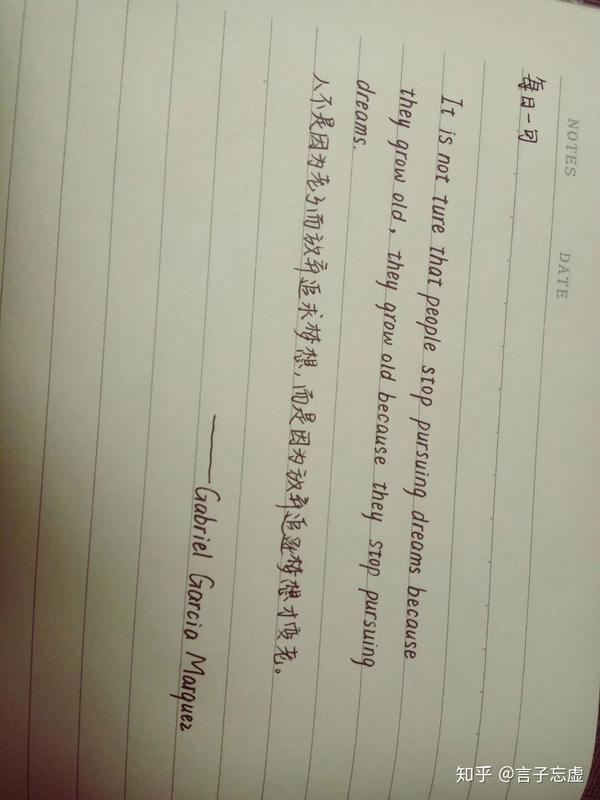 NOTES
DATE
每日一句
It is not ture that people stop pursuing dreams because
they grow old, they grow old because they stop pursuing
dreams.
人不是因为老了而放弃追求梦想,而是因为放弃追逐梦想才变老。
——Gabriel Garcia Marquez
知乎 @言子忘虚